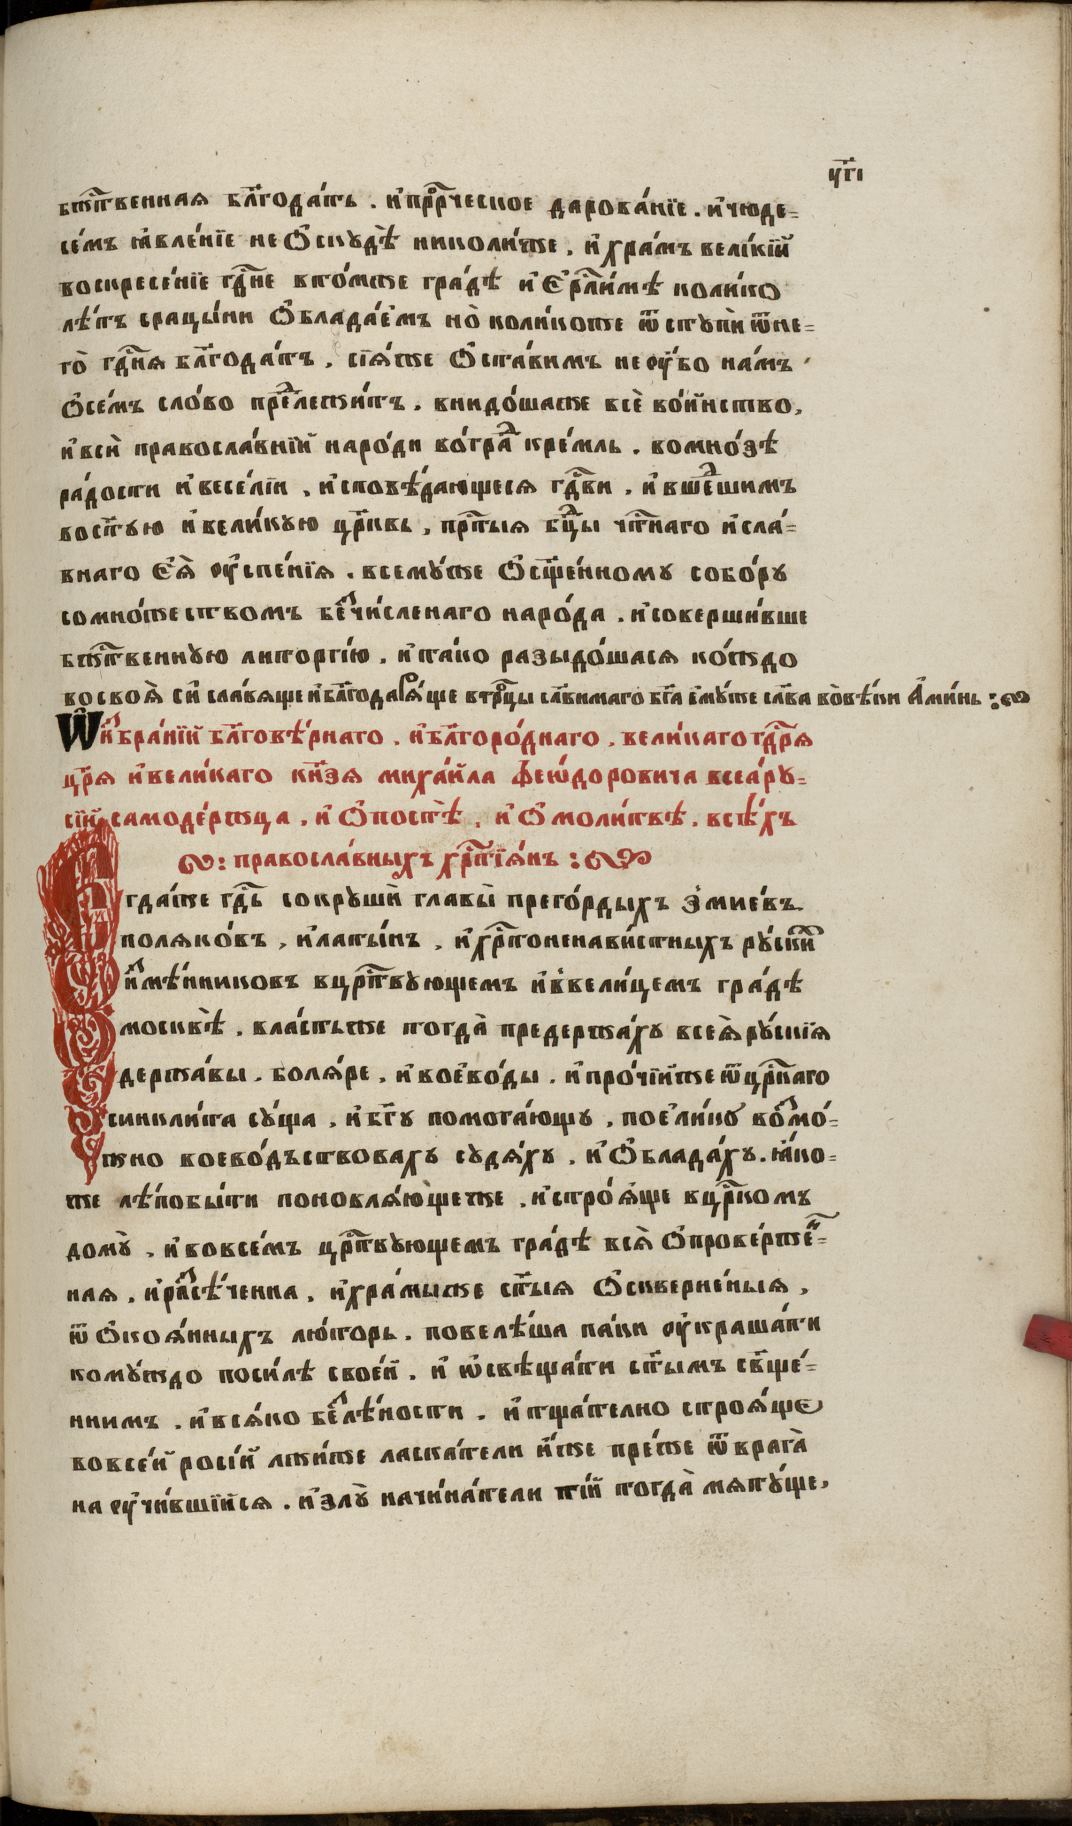 ч҃гі
бж҃тве́нная бл҃года́ть . и҆прⷪ҇рческое дарова́нїе . и҆чюде-
се́мъ ꙗ҆вле́нїе не ѻ҆скꙋдѣ̀ николи́же , и҆ хра́мъ вели́кїй
воскресе́нїе гдⷭ҇не вто́мже гра́дѣ и҆ є҆рⷭ҇ли́мѣ коли́ко
лѣ́тъ срацы́ни ѻ҆блада́емъ но̀ коли́коже ѿ стꙋпѝ ѿне-
го̀ гдⷭ҇ня бл҃года́ть . сїѧ́же ѻ҆ста́вимъ не ᲂу҆́бо на́мъ
ѻ҆се́мъ сло́во прⷣлежи́тъ . внидо́шаже всѐ во́инство ,
и҆всѝ правосла́внїй наро́ди во́граⷣ кре́мль . вомно́зѣ
ра́дости и҆весе́лїи , и҆сповѣ́дающеся гдⷭ҇ви . и҆вшеⷣшимъ
вост҃ꙋю и҆вели́кꙋю црⷦ҇вь , прⷭ҇тыя бцⷣы чтⷭ҇наго и҆сла́-
внаго є҆ѧ̀ ᲂу҆спе́нїя . всемꙋ́же ѻ҆сщ҃е́нномꙋ собо́рꙋ
сомно́жеством­ъ беⷥчи́сленаго наро́да . и҆соверши́вше
бж҃тве́ннꙋю литорги́ю . и҆та́ко разыдо́шася ко́ждо
восвоѧ̀ сѝ сла́вяще и҆бл҃годаря́ще втрⷪ҇цы сла́вимаго бг҃а є҆мꙋ́же сла́ва во̀вѣ́ки а҆ми́нь :
Ѡ и҆ⷥбра́нїй бл҃говѣ́рнаго . и҆бл҃горо́днаго . вели́каго гдⷭ҇ря
цр҃я и҆вели́каго кн҃зя миха́ила феѡ́доровича всеа́рꙋ-
сїи самоде́ржца . и҆ ѻ҆постѣ̀ . и҆ ѻ҆моли́твѣ . всѣ́хъ
: правосла́вныхъ хрⷭ҇тїѧ́нъ :
Єгда́же гдⷭ҇ь сокрꙋшѝ главы̀ прего́рдыхъ змїе́въ
поляко́въ , и҆латы́нъ , и҆хрⷭ҇тоненави́стныхъ рꙋ́скиⷯ
и҆ⷥмѣ́нниковъ вцрⷭ҇твꙋющемъ и҆ввели́цемъ гра́дѣ
москвѣ̀ . вла́стьже тогда̀ предержа́хꙋ всеѧ̀рꙋ́скїя
держа́вы . боля́ре , и҆воево́ды . и҆про́чїиже ѿцрⷭ҇каго
синкли́та сꙋ́ща , и҆бг҃ꙋ помога́ющꙋ , поели́кꙋ воⷥмо́-
жно воево́дъствовахꙋ сꙋдя́хꙋ , и҆ ѻ҆блада́хꙋ . ꙗ҆́ко-
же лѣ́побыти поновля́юще́же . и҆строѧ́ще вцрⷭ҇комъ
домꙋ̀ . и҆вовсе́мъ црⷭ҇твꙋющемъ гра́дѣ всѧ̀ ѻ҆прове́рженⷩ-
ная . и҆раⷥсѣ́ченна . и҆хра́мыже ст҃ы́я ѻ҆скверне́ныя ,
ѿ ѻ҆коѧ́нныхъ лю́торъ . повелѣ́ша па́ки ᲂу҆краша́ти
комꙋ́ждо поси́лѣ свое́й . и҆ ѡ҆свѣща́ти ст҃ы́мъ сщ҃е́-
ниимъ . и҆всѧ́ко беⷥлѣ́ности . и҆тща́телно строѧ́ще
вовсе́й росі́й лжи́же ласка́тели и҆́же пре́же ѿврага̀
наᲂу҆чи́вшїися . и҆злꙋ̀ начина́тели ті́й тогда̀ мятꙋ́ще ,